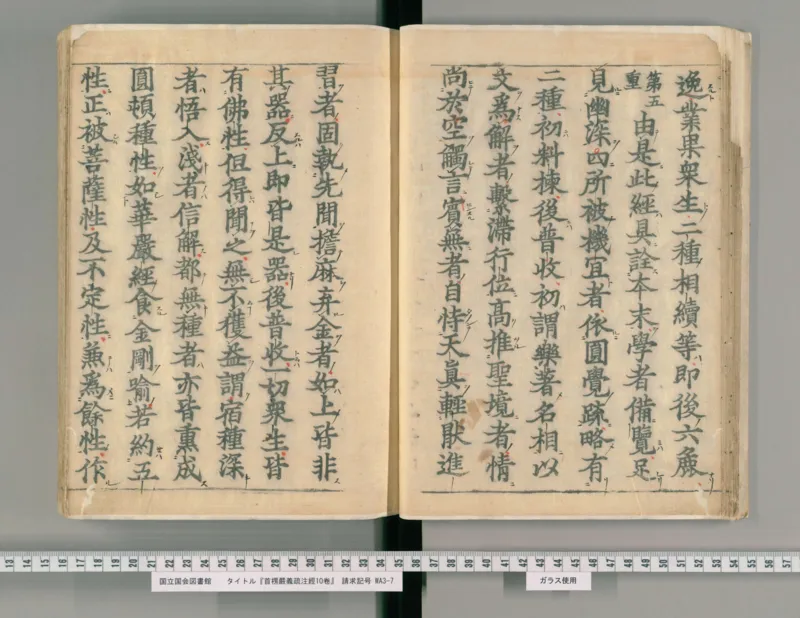 逸業果衆生二種相續等即後六麁
第五
重
由是此經具詮本末學者備覽足
見幽深四所被機宜者依圓覺疏略有
二種初料揀後普收初謂樂著名相以
文爲解者繫滯行位髙推聖境者情
尚於空觸言賓無者自恃天眞輕猒進
習者固執先聞擔麻弃金者如上皆非
其器反上即皆是器後普收一切衆生皆
有佛性但得聞之無不獲益謂宿種深
者悟入淺者信解都無種者亦皆熏成
圓頓種性如華嚴經食金剛喻若約五
性正被菩薩性及不定性兼爲餘性作
13 14 15 16 17 18 19 20 21 22 23 24 25 26 27 28 29 30 31 32 33 34 35 36 37 38 39 40 41 42 43 44 45 46 47 48 49 50 51 52 53 54 55 56 57
国立国会図書館 タイトル『首楞嚴義疏注經10巻』 請求記号 WA3-7
ガラス使用